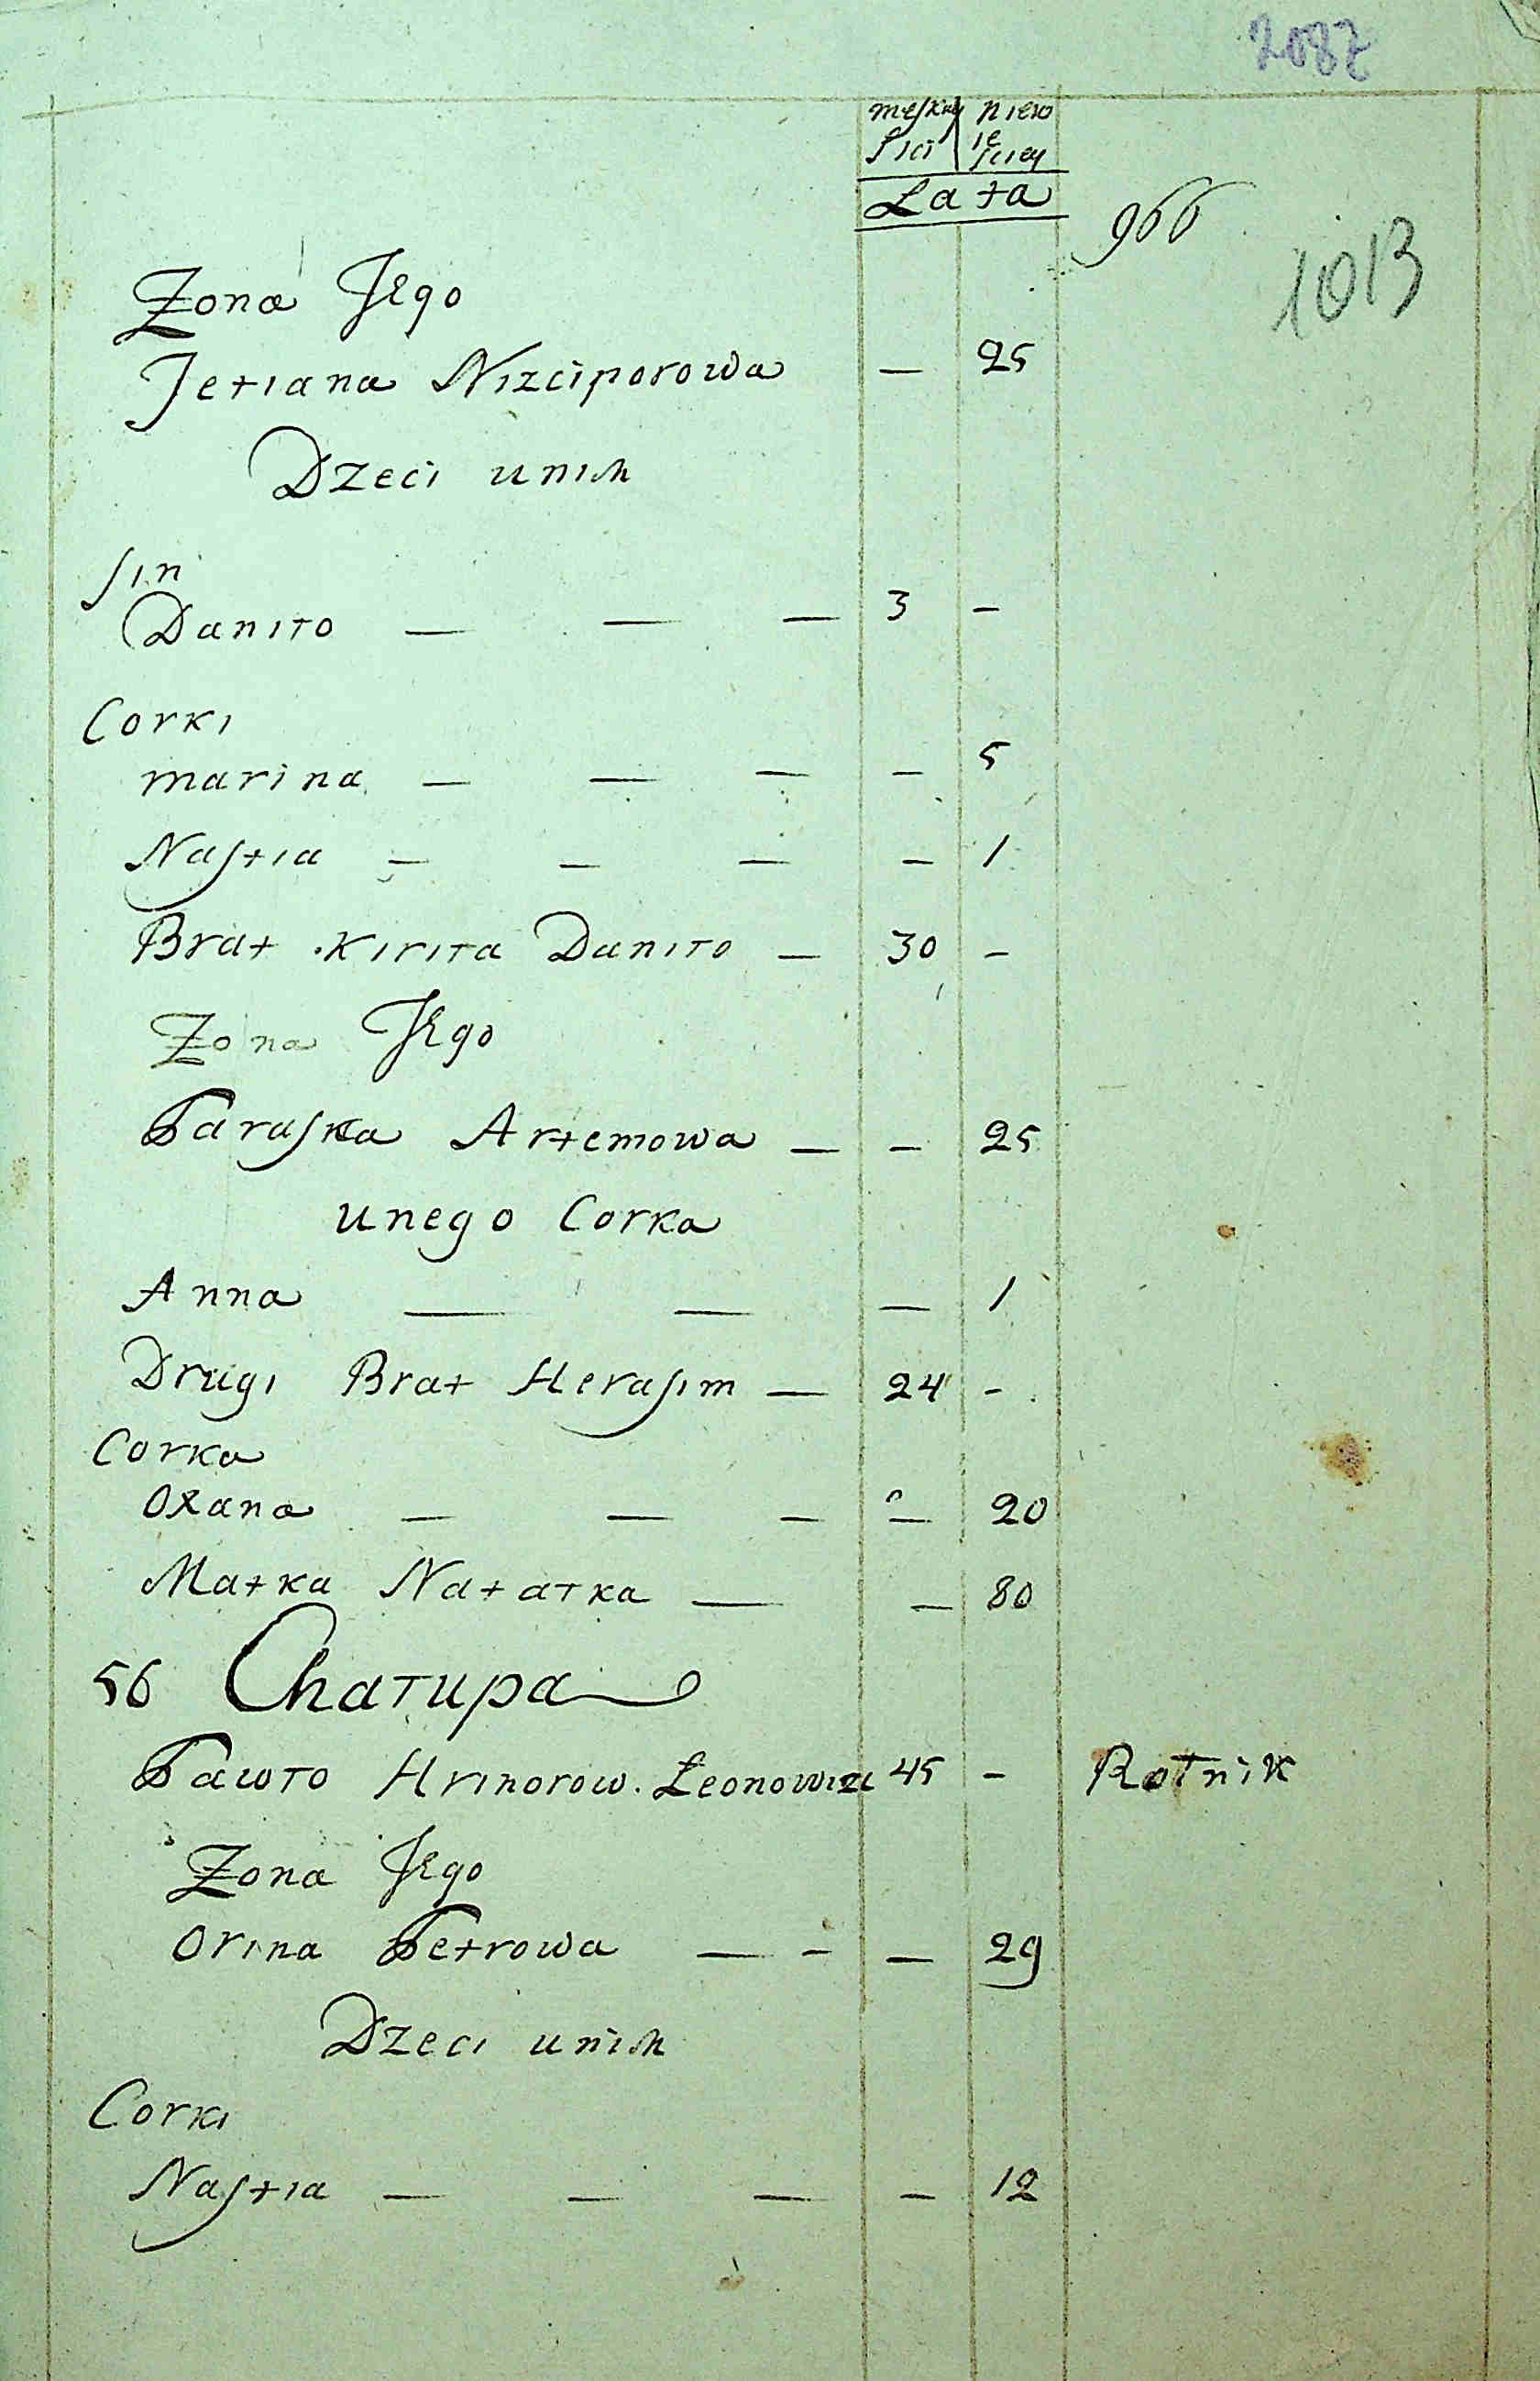 2087
meskey niew
sici ie sciey
Lata
966
1013
Zona Jego
Jetiana Nizciporowa — 25
Dzeci unich
sin
Daniło — — — 3 –
Corki
marina — — — – 5
Nastia – – — – 1
Brat Kiriła Daniło — 30 –
Zona Jego
Paraska Artemowa — – 25
unego Corka
Anna — — — 1
Drugi Brat Herasim — 24 –
Corka
Oxana — — — – 20
Matka Natałka — – 80
56 Chałupa
Pawło Hrihorow. Leonowicz 45 – Rolnik
Zona Jego
Orina Petrowa — – — 29
Dzeci unich
Corki
Nastia — — — – 12